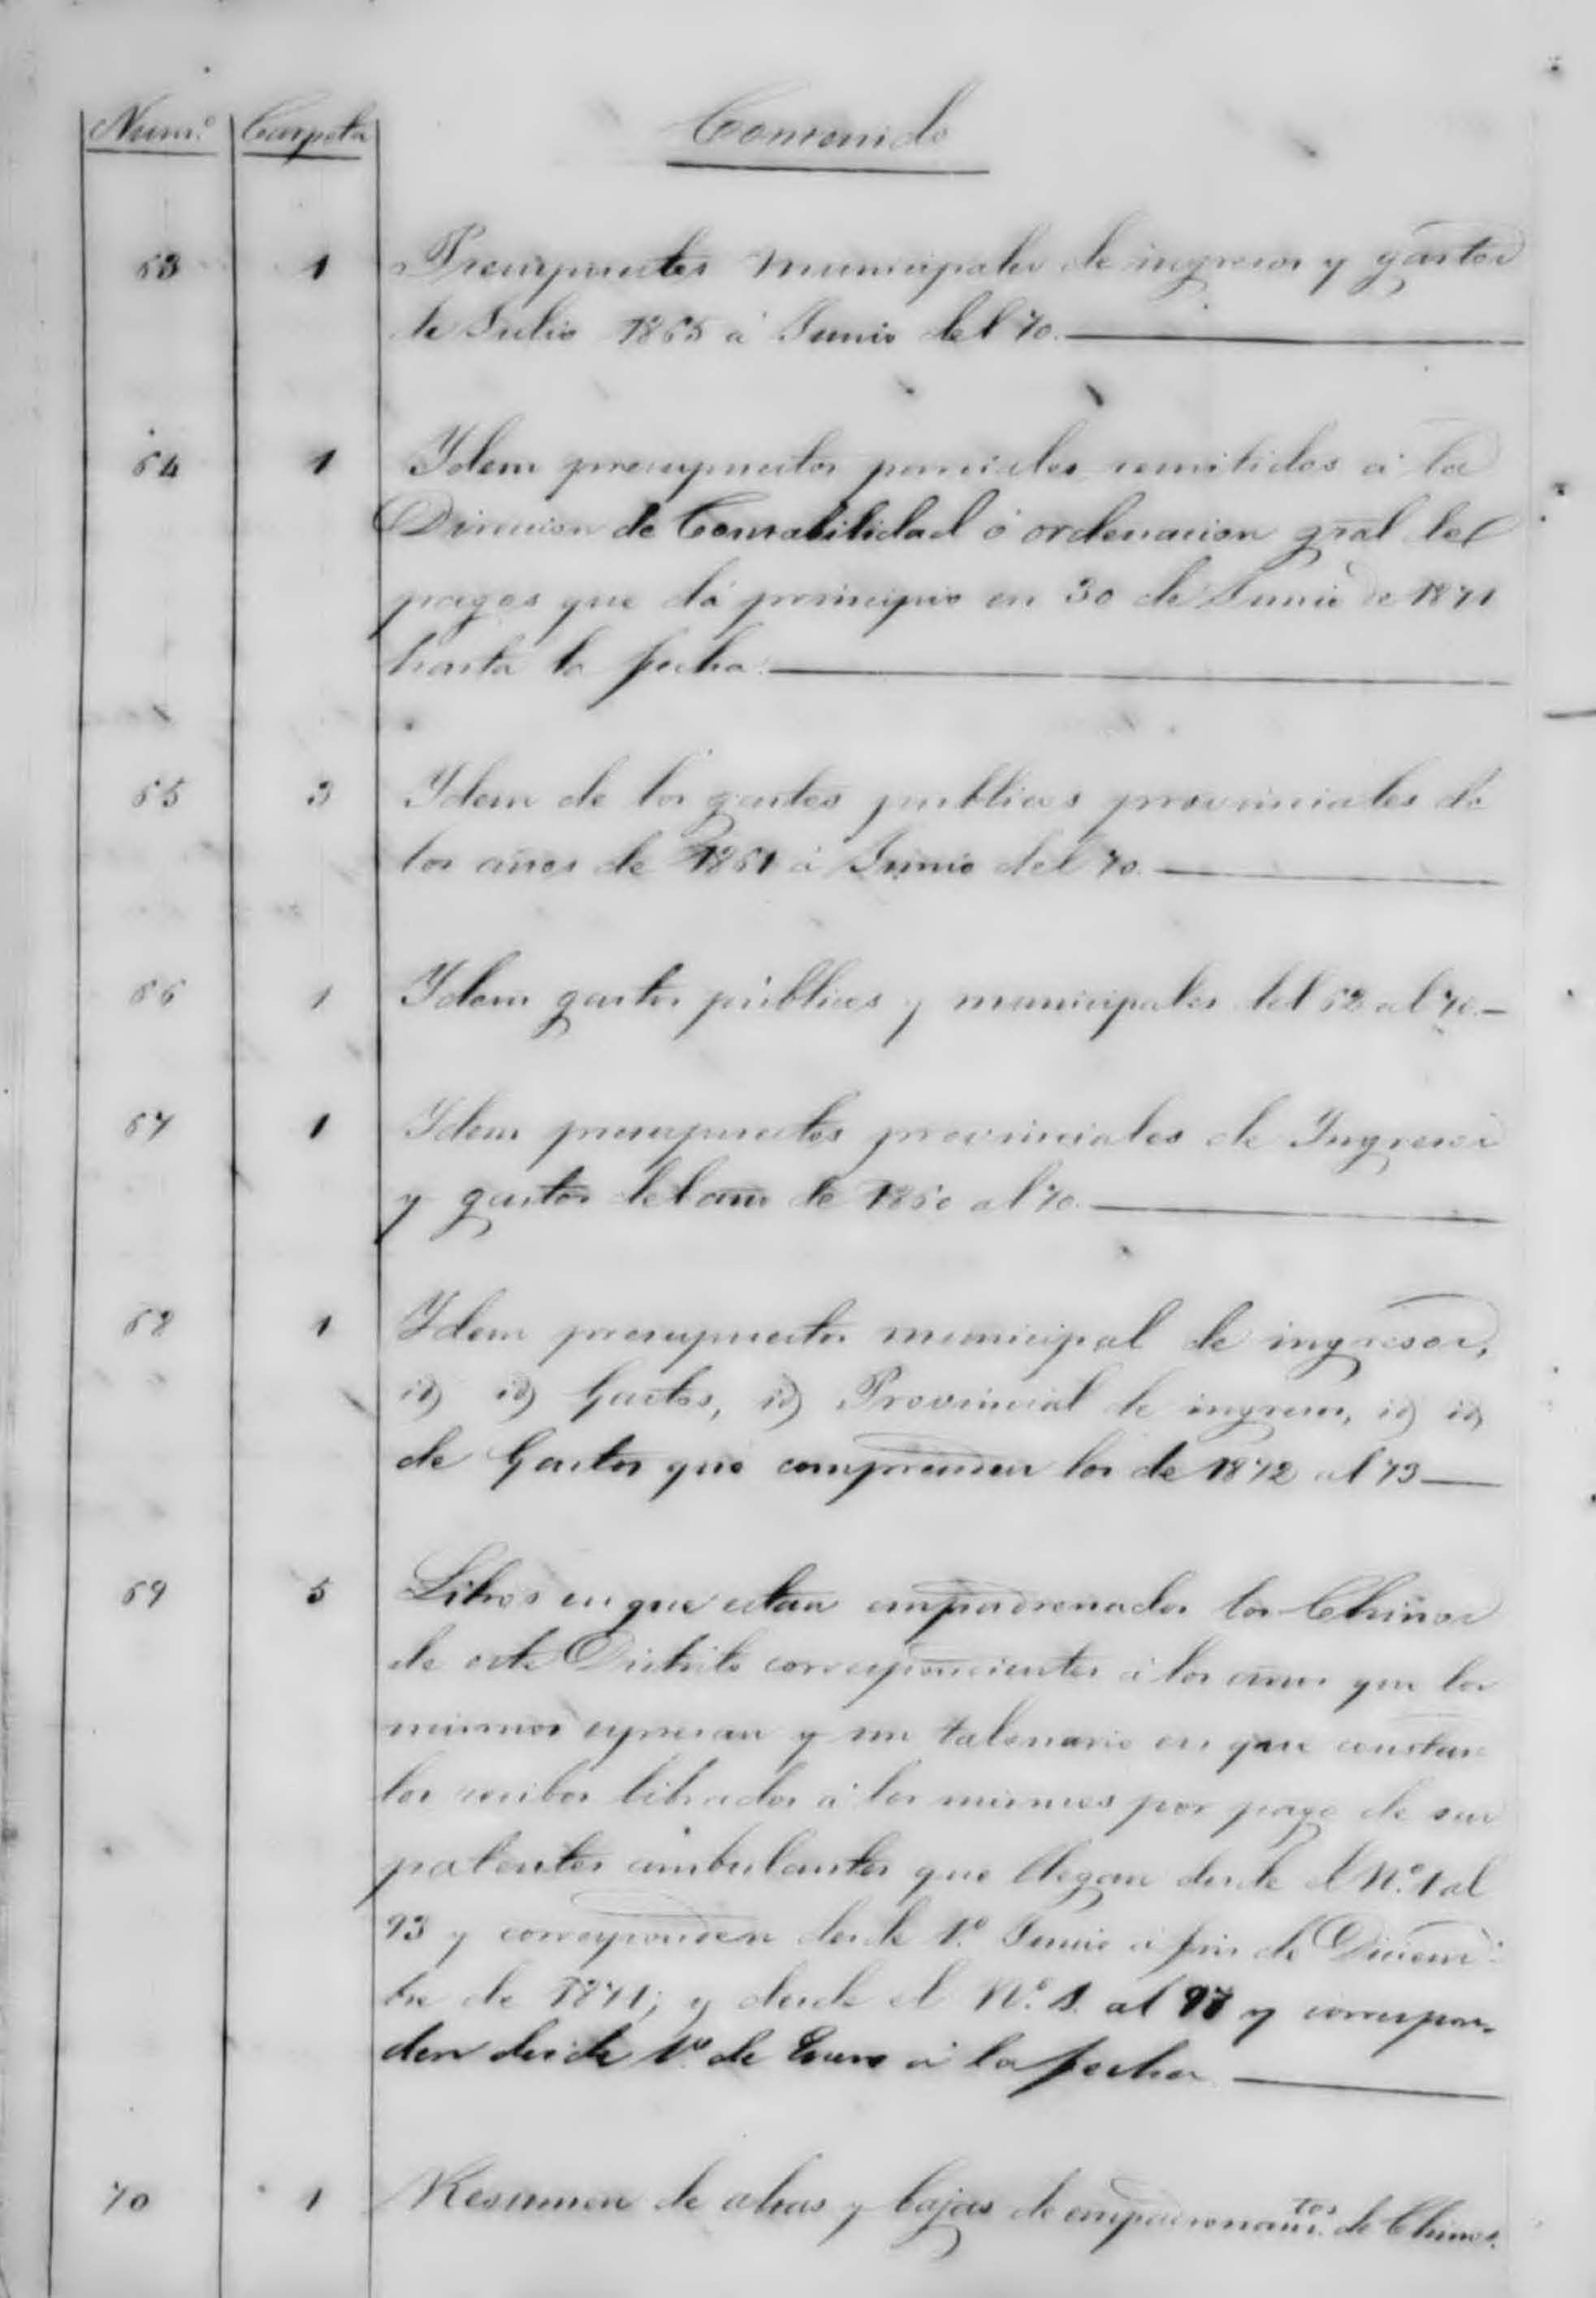 Num.º Carpeta Contenido
63 1 Presupuestos Municipales de ingresos y gastos
de Julio 1865 á Junio del 70.
64 1 Ydem presupuestos parciales remitidos á la
Direccion de Contabilidad ó ordenacion gral del
pagos que dá principio en 30 de Junio de 1871
hasta la fecha.
65 3 Ydem de los gastos publicos provinciales de
los años de 1861 á Junio del 70.
66 1 Ydem gastos públicos y municipales del 62 al 70.
67 1 Ydem presupuestos provinciales de Ingresos
y gastos del año de 1860 al 70.
68 1 Ydem presupuestos municipal de ingresos,
id id Gastos, id Provincial de ingresos, id id
de Gastos que comprenden los de 1872 al 73
69 5 Libros en que estan empadronados los Chinos
de este Distrito correspondientes á los años que los
mismos espresan y un talonario en que constan
los recibos librados á los mismos por pago de sus
patentes ambulantes que llegan desde el Nº. 1 al
93 y corresponden desde 1º. Junio á fin de Diciem-
bre de 1871; y desde el Nº. 1. al 97 y correspon-
den desde 1º. de Enero á la fecha
70 1 Resumen de altas y bajas de empadronam.tos de Chinos.